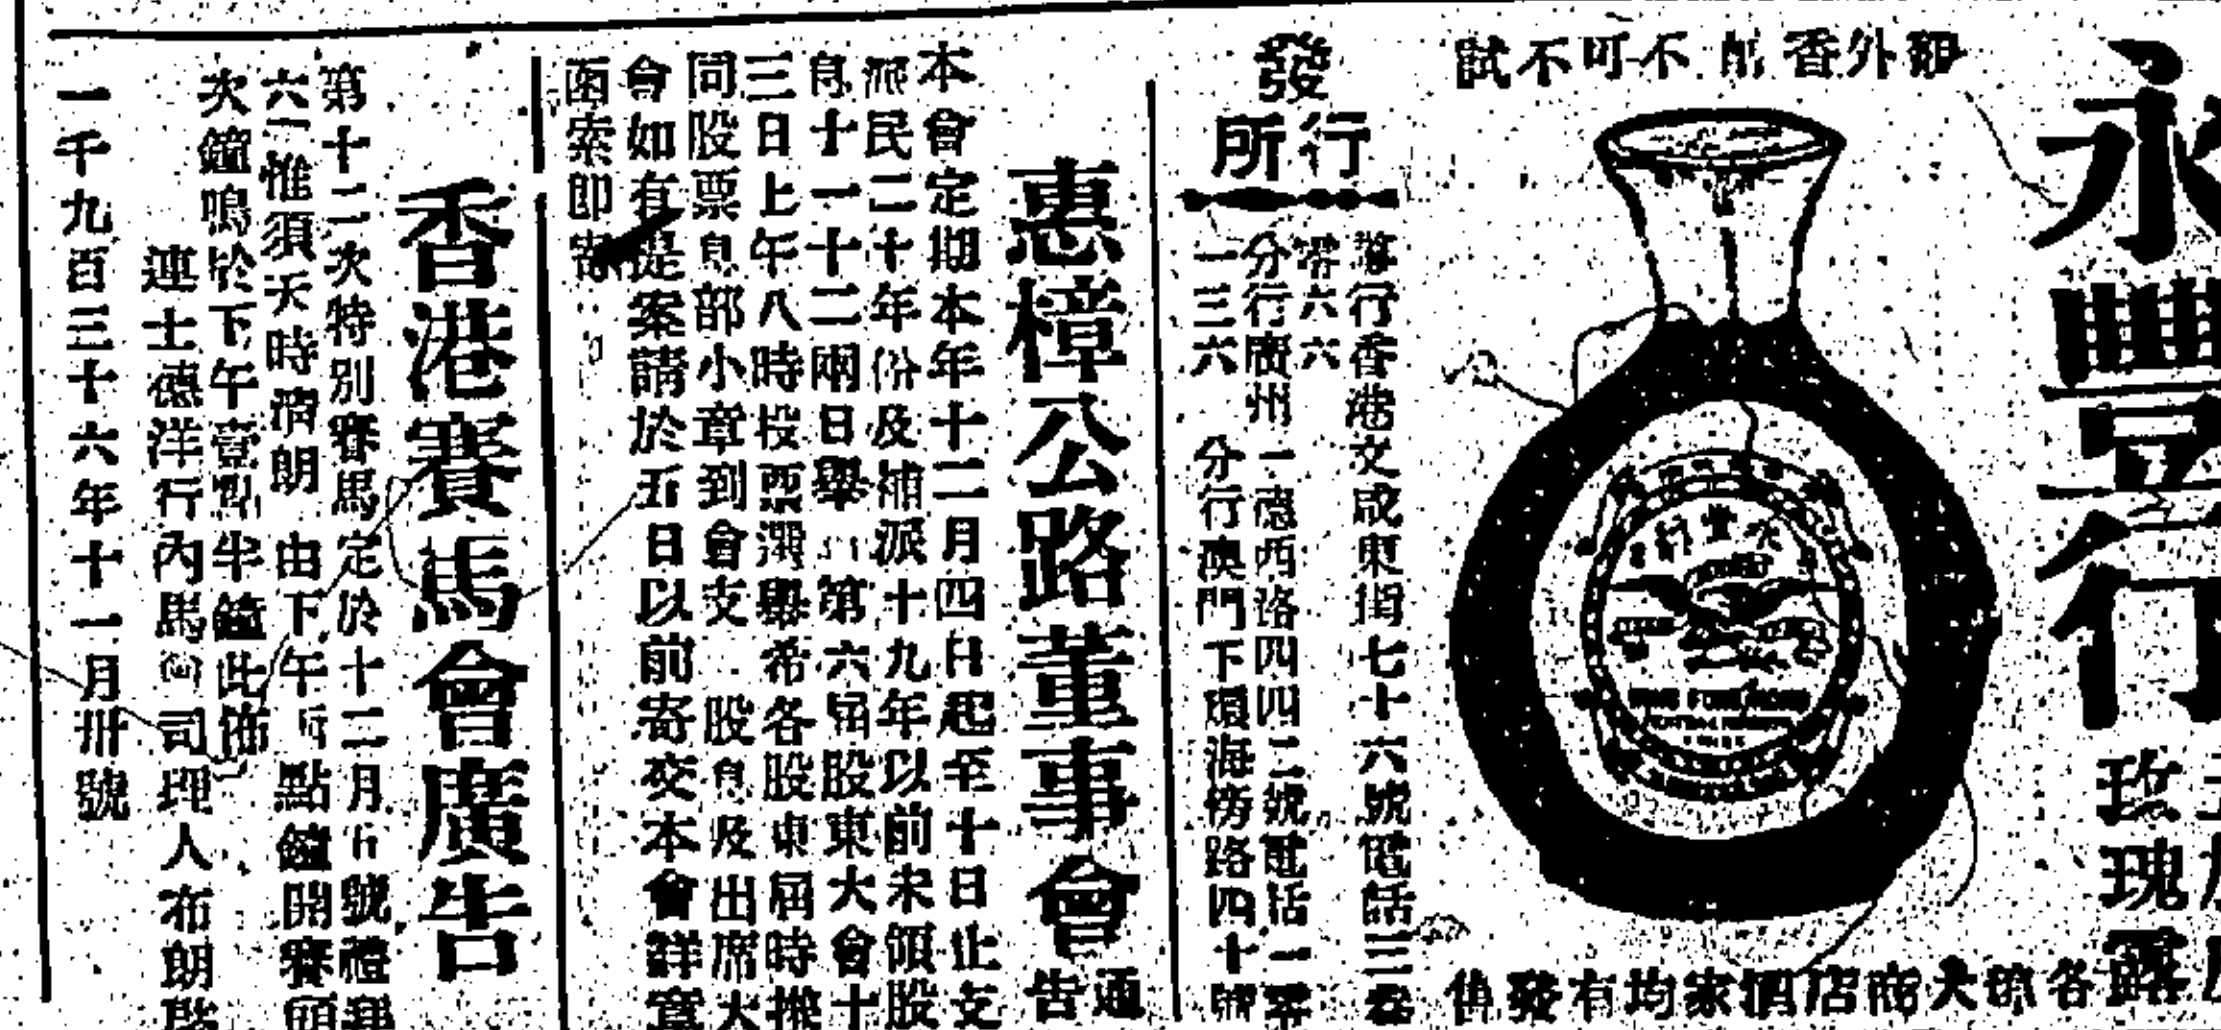 永豐行
玫瑰露
外香 不可不試
各 大商店酒家均有發售
發行所
行香港文咸東街七十六號電話三
零六六
分行廣州一德西路四四二號電話一零
一三六 分行澳門下環海傍路四十
惠樟公路董事會
通告
本會定期本年十二月四日起至十日止支
派民二十年份及補派十九年以前未領股
息十一十二兩日舉 第六屆股東大會十
三日上午八時投票選舉希各股東屆時携
同股票息部小章到會支 股息及出席大
會如有提案請於五日以前寄交本會詳章
函索即寄
香港賽馬會廣告
第十二次特別賽馬定於十二月 號禮拜
六 惟須天時清朗 由下午 點鐘開賽頭
次鐘鳴於下午壹點半鐘此佈
連士德洋行內馬 司理人布朗啟
一千九百三十六年十一月卅號